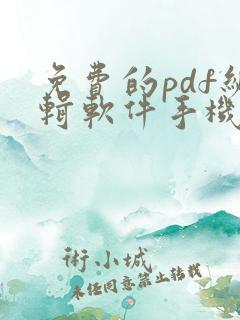 免費的pdf編
輯軟件手機
術小城
未經同意禁止轉載